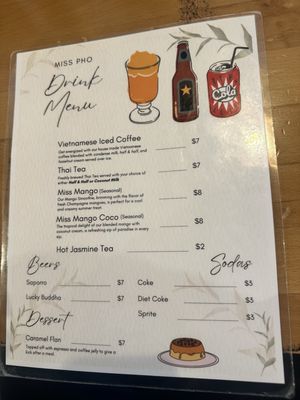 MISS PHO
Drink
Menu
Cola
Vietnamese Iced Coffee $7
Get energized with our house made Vietnamese
coffee blended with condense milk, half & half, and
hazelnut cream served over ice.
Thai Tea $7
Freshly brewed Thai Tea served with your choice of
either Half & Half or Coconut Milk
Miss Mango (Seasonal) $8
Our Mango Smoothie, brimming with the flavor of
fresh Champagne mangoes, is perfect for a cool
and creamy summer treat.
Miss Mango Coco (Seasonal) $8
The tropical delight of our blended mango with
coconut cream, a refreshing sip of paradise in every
sip.
Hot Jasmine Tea $2
Beers
Saporro $7
Lucky Buddha $7
Sodas
Coke $3
Diet Coke $3
Sprite $3
Dessert
Caramel Flan $7
Topped off with espresso and coffee jelly to give a
kick after a meal.